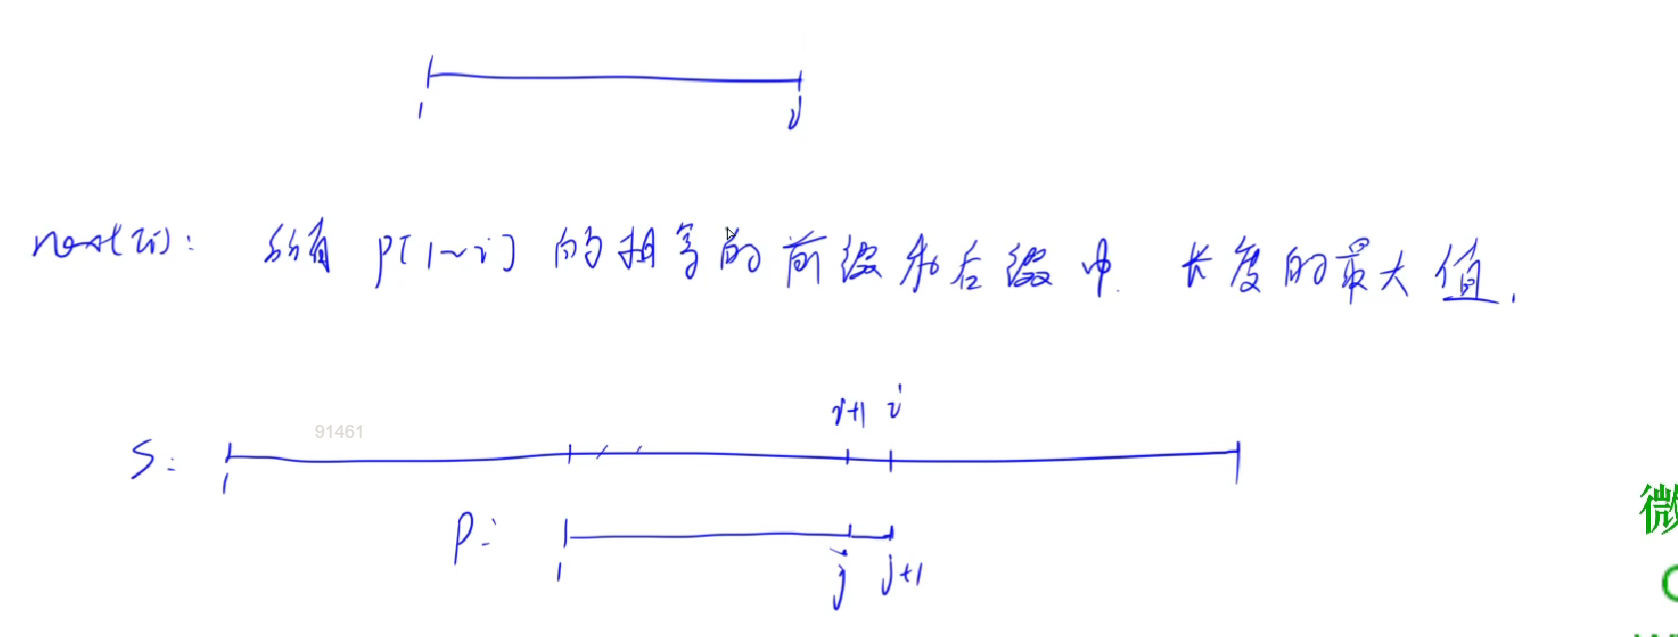 1 j
next[i]: 所有 p[1~i] 的相等的前缀和后缀中 长度的最大值.
i+1 i
91461
S:
1
P:
1 j j+1
微